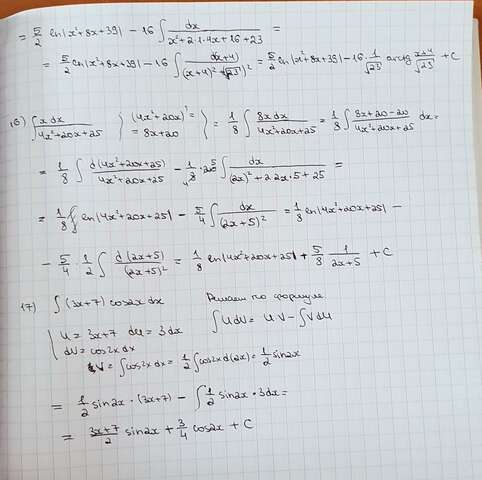 = 5/2 ln|x²+8x+39| - 16 ∫ dx/(x²+2·1·4x+16+23) =
= 5/2 ln|x²+8x+39| - 16 ∫ d(x+4)/((x+4)²+(√23)²) = 5/2 ln|x²+8x+39| - 16 · 1/√23 arctg (x+4)/√23 + C
16) ∫ x dx/(4x²+20x+25) } (4x²+20x)' = = 8x+20 } = 1/8 ∫ 8x dx/(4x²+20x+25) = 1/8 ∫ (8x+20-20)/(4x²+20x+25) dx =
= 1/8 ∫ d(4x²+20x+25)/(4x²+20x+25) - 1/8 · 20 ∫ dx/((2x)²+2·2x·5+25) =
= 1/8 ln|4x²+20x+25| - 5/4 ∫ dx/(2x+5)² = 1/8 ln|4x²+20x+25| -
- 5/4 · 1/2 ∫ d(2x+5)/(2x+5)² = 1/8 ln|4x²+20x+25| + 5/8 1/(2x+5) + C
17) ∫ (3x+7) cos2x dx Решаем по формуле
{ u = 3x+7 du = 3dx ∫ U dV = UV - ∫ V dU
dV = cos2x dx
V = ∫ cos2x dx = 1/2 ∫ cos2x d(2x) = 1/2 sin2x
= 1/2 sin2x · (3x+7) - ∫ 1/2 sin2x · 3dx =
= (3x+7)/2 sin2x + 3/4 cos2x + C